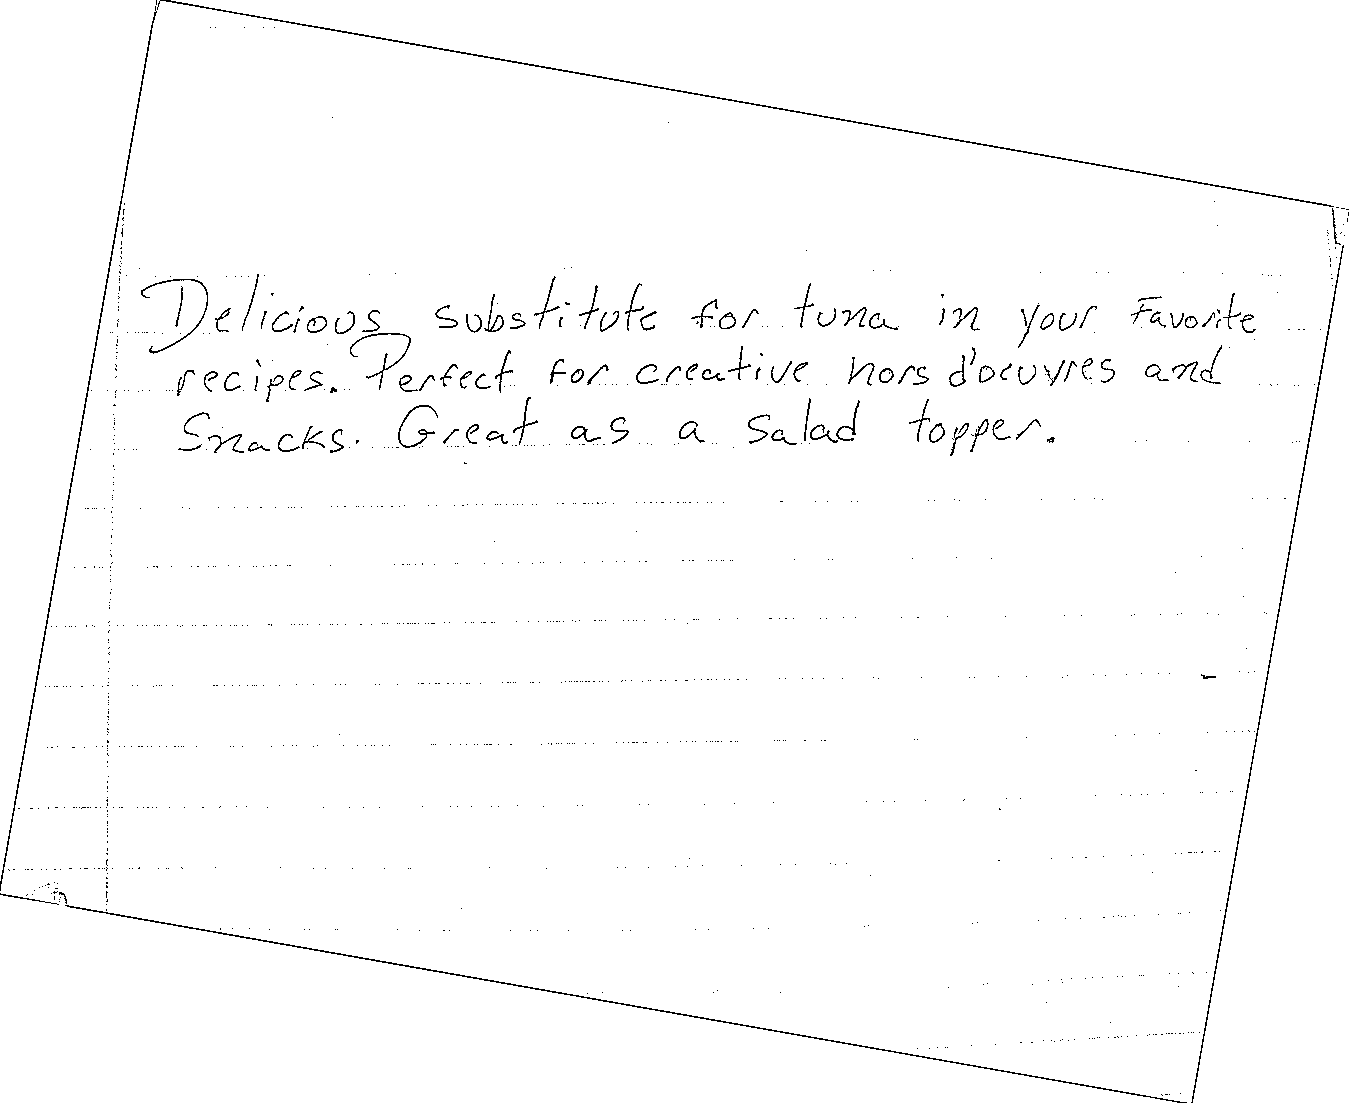 Delicious substitute for tuna in your Favorite
recipes. Perfect for creative hors d'oeuvres and
Snacks. Great as a salad topper.